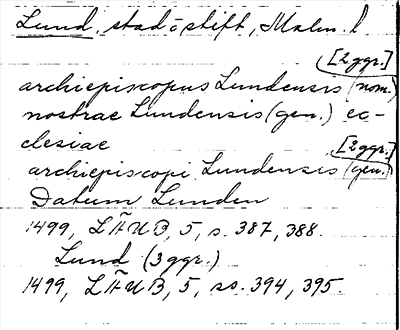 Lund, stad o stift, Malm. l
[2 ggr.]
archiepiscopus Lundensis (nom.)
nostrae Lundensis (gen.) ec-
clesiae
[2 ggr.]
archiepiscopi Lundensis (gen.)
Datum Lunden
1499, LÄUB, 5, s. 387, 388.
Lund (3 ggr.)
1499, LÄUB, 5, ss. 394, 395.